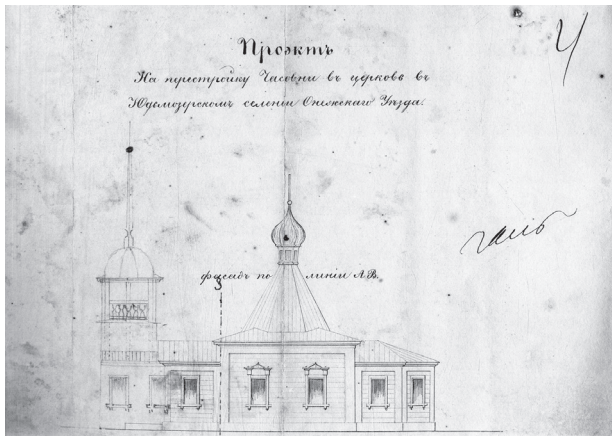 Проэктъ
На перестройку Часовни въ церковь въ
Юдмозерскомъ селеніи Онежскаго Уѣзда.
фасадъ по линіи А.В.